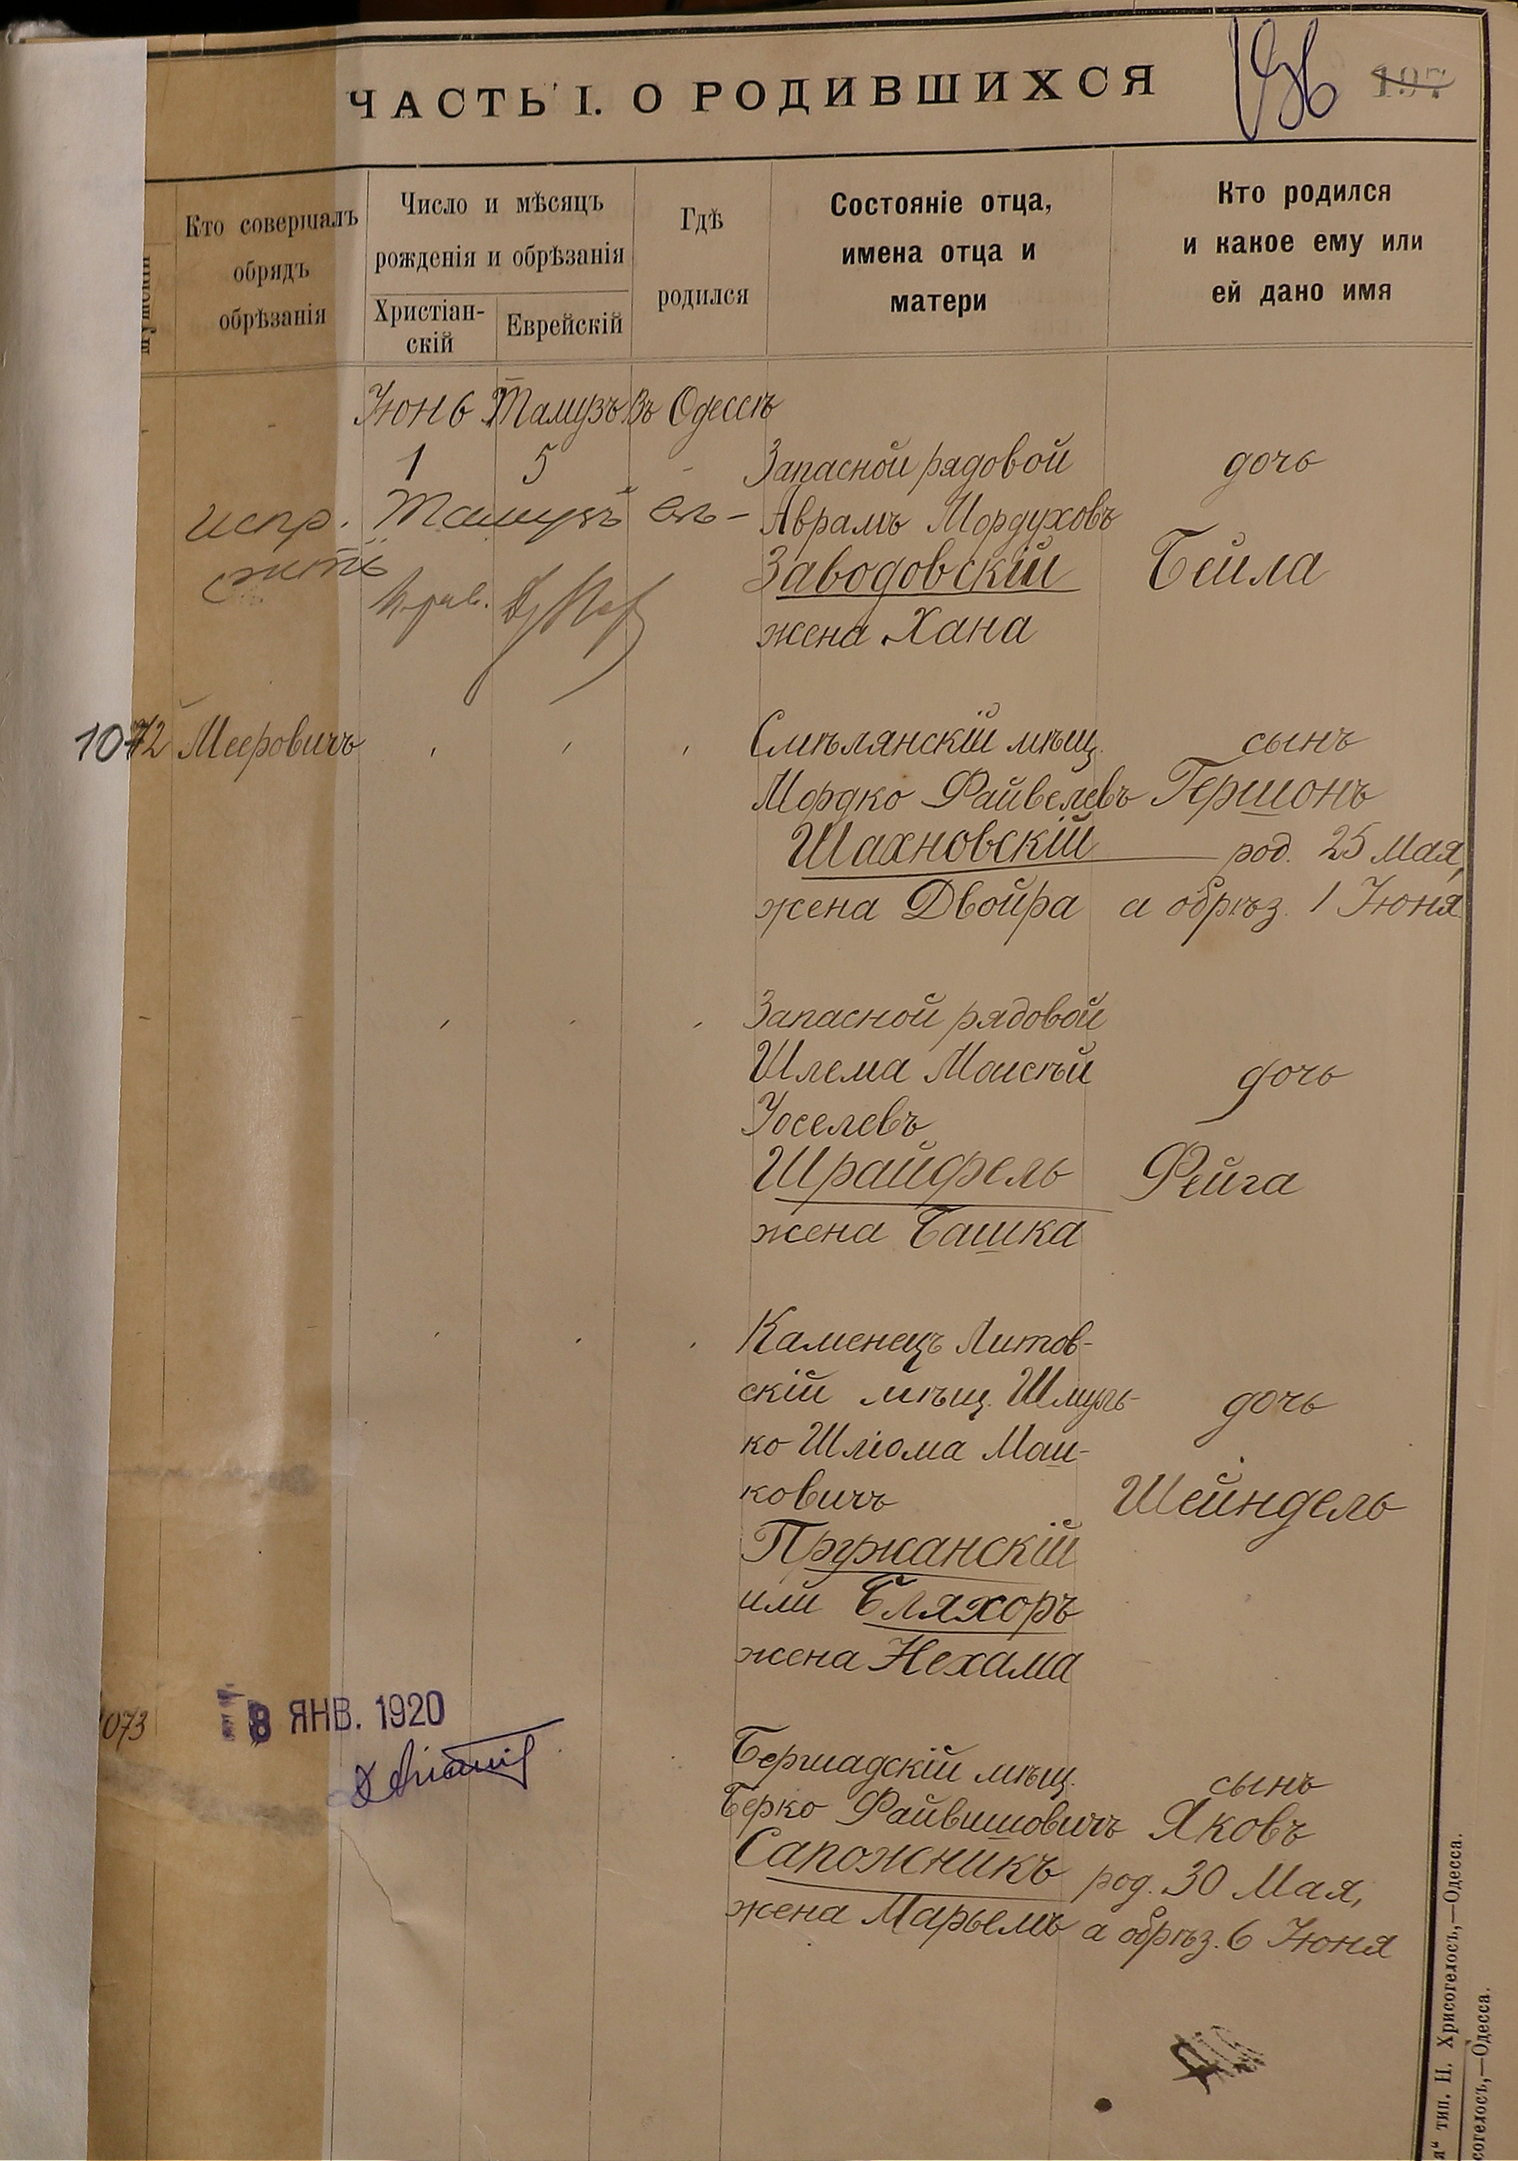 ЧАСТЬ I. О РОДИВШИХСЯ
196
197
Кто совершалъ
обрядъ
обрѣзанія
Число и мѣсяцъ
рожденія и обрѣзанія
Христіан-
скій
Еврейскій
Гдѣ
родился
Состояніе отца,
имена отца и
матери
Кто родился
и какое ему или
ей дано имя
Іюнь Тамузъ Въ Одессѣ
1 5 Запасной рядовой дочь
испр. Тамузъ
Аврамъ Мордуховъ
Заводовскій Бейла
жена Хана
1072 Мееровичъ
Смѣлянскій мѣщ. сынъ
Мордко Файвелевъ Гершонъ
Шахновскій род. 25 Мая,
жена Двойра а обрѣз. 1 Іюня
Запасной рядовой
Шлема Моисѣй дочь
Іоселевъ
Шрайфель Фейга
жена Башка
Каменецъ Литов-
скій мѣщ. Шмуль- дочь
ко Шліома Мош-
ковичъ Шейндель
Пружанскій
или Бляхоръ
жена Нехама
1073
8 ЯНВ. 1920
Бершадскій мѣщ. сынъ
Берко Файвишовичъ Яковъ
Сапожникъ род. 30 Мая,
жена Марьемъ а обрѣз. 6 Іюня
я“ тип. Н. Хрисогелосъ,—Одесса.
согелосъ,—Одесса.